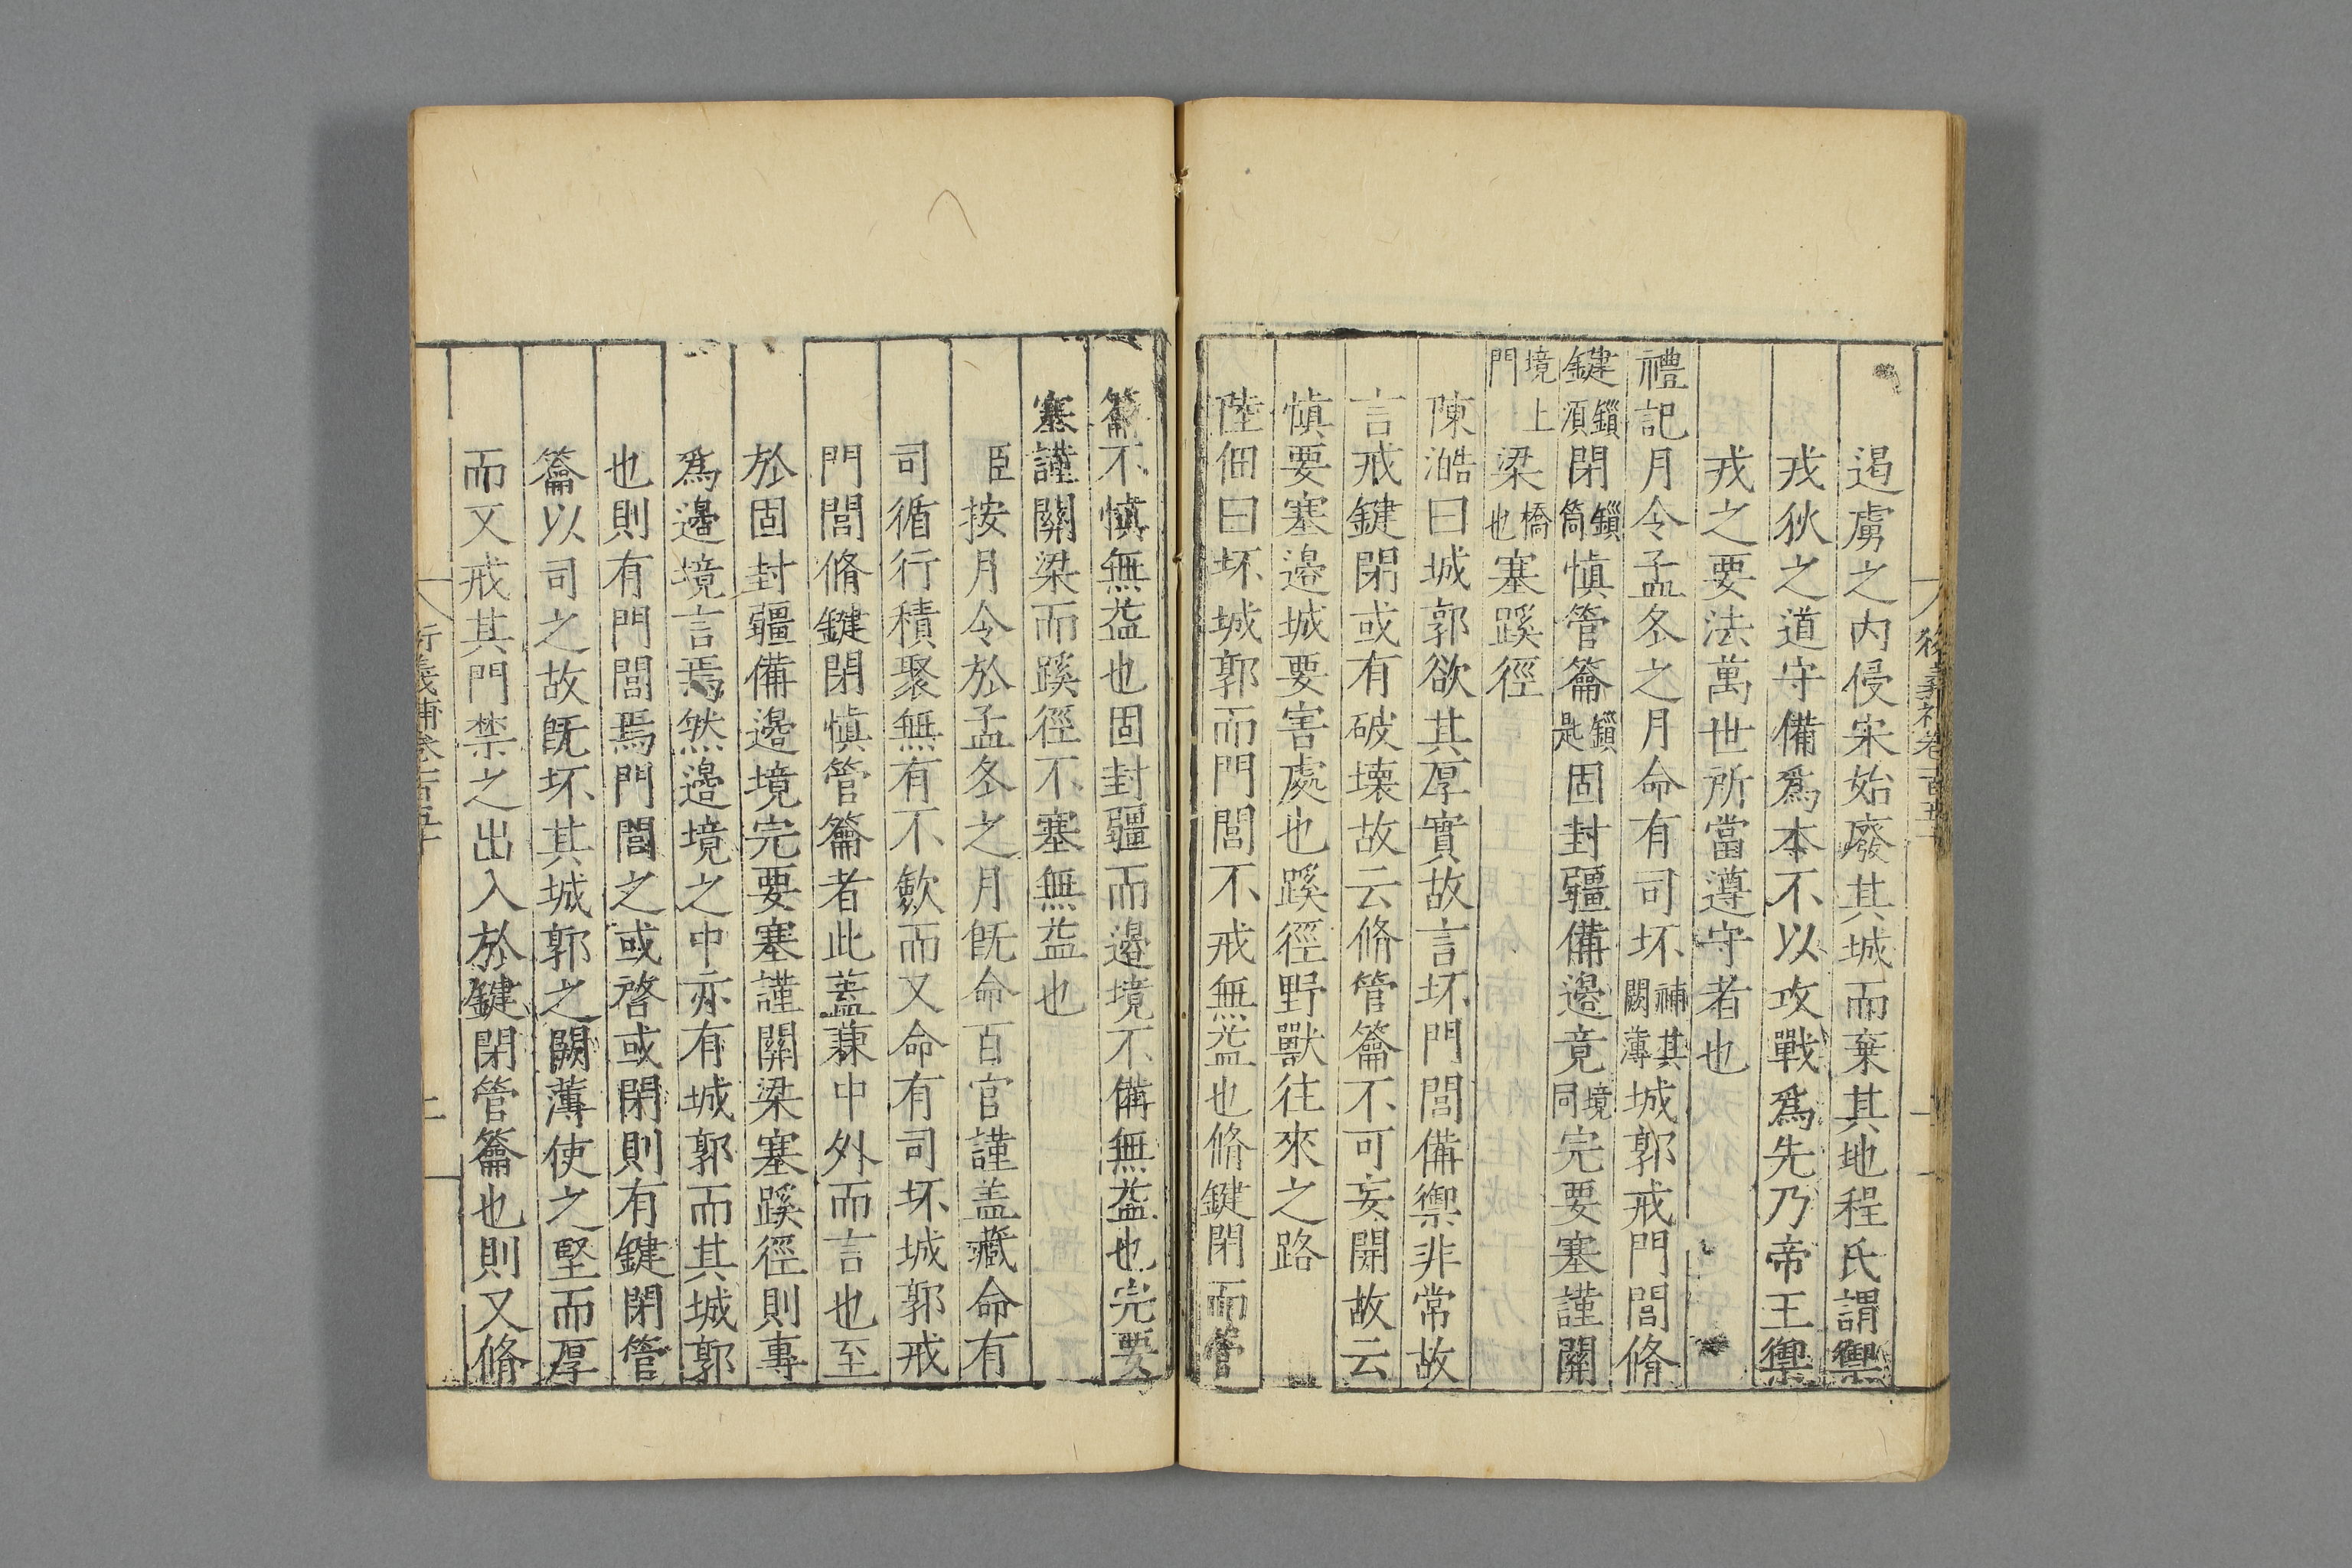 遏虜之内侵宋始廢其城而棄其地程氏謂禦
戎狄之道守備爲本不以攻戰爲先乃帝王禦
戎之要法萬世所當遵守者也
禮記月令孟冬之月命有司坏補其闕薄城郭戒門閭脩
鍵鎖須閉鎖筒愼管籥鎖匙固封疆備邊竟境同完要塞謹關
境上門梁橋也塞蹊徑
陳澔曰城郭欲其厚實故言坏門閭備禦非常故
言戒鍵閉或有破壊故云脩管籥不可妄開故云
愼要塞邊城要害處也蹊徑野獸往來之路
陸佃曰坏城郭而門閭不戒無益也脩鍵閉而管
籥不愼無益也固封疆而邊境不備無益也完要
塞謹關梁而蹊徑不塞無益也
臣按月令於孟冬之月旣命百官謹盖藏命有
司循行積聚無有不歛而又命有司坏城郭戒
門閭脩鍵閉愼管籥者此蓋兼中外而言也至
於固封疆備邊境完要塞謹關梁塞蹊徑則專
爲邊境言焉然邊境之中亦有城郭而其城郭
也則有門閭焉門閭之或啓或閉則有鍵閉管
籥以司之故旣坏其城郭之闕薄使之堅而厚
而又戒其門禁之出入於鍵閉管籥也則又脩